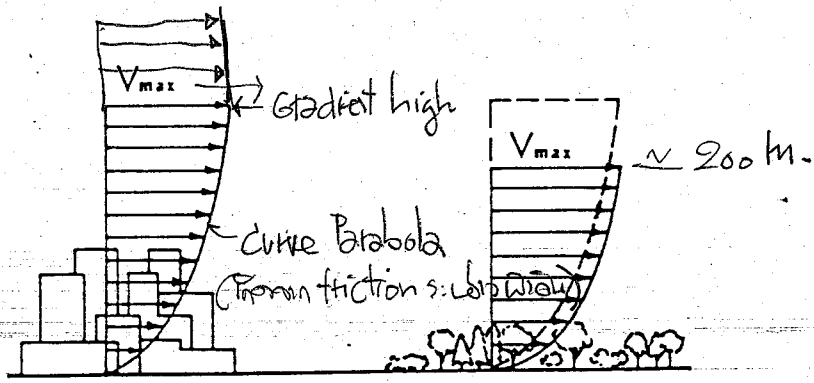 Vmax
Gradient high
Curve Parabola
friction
Vmax
~ 200 m.